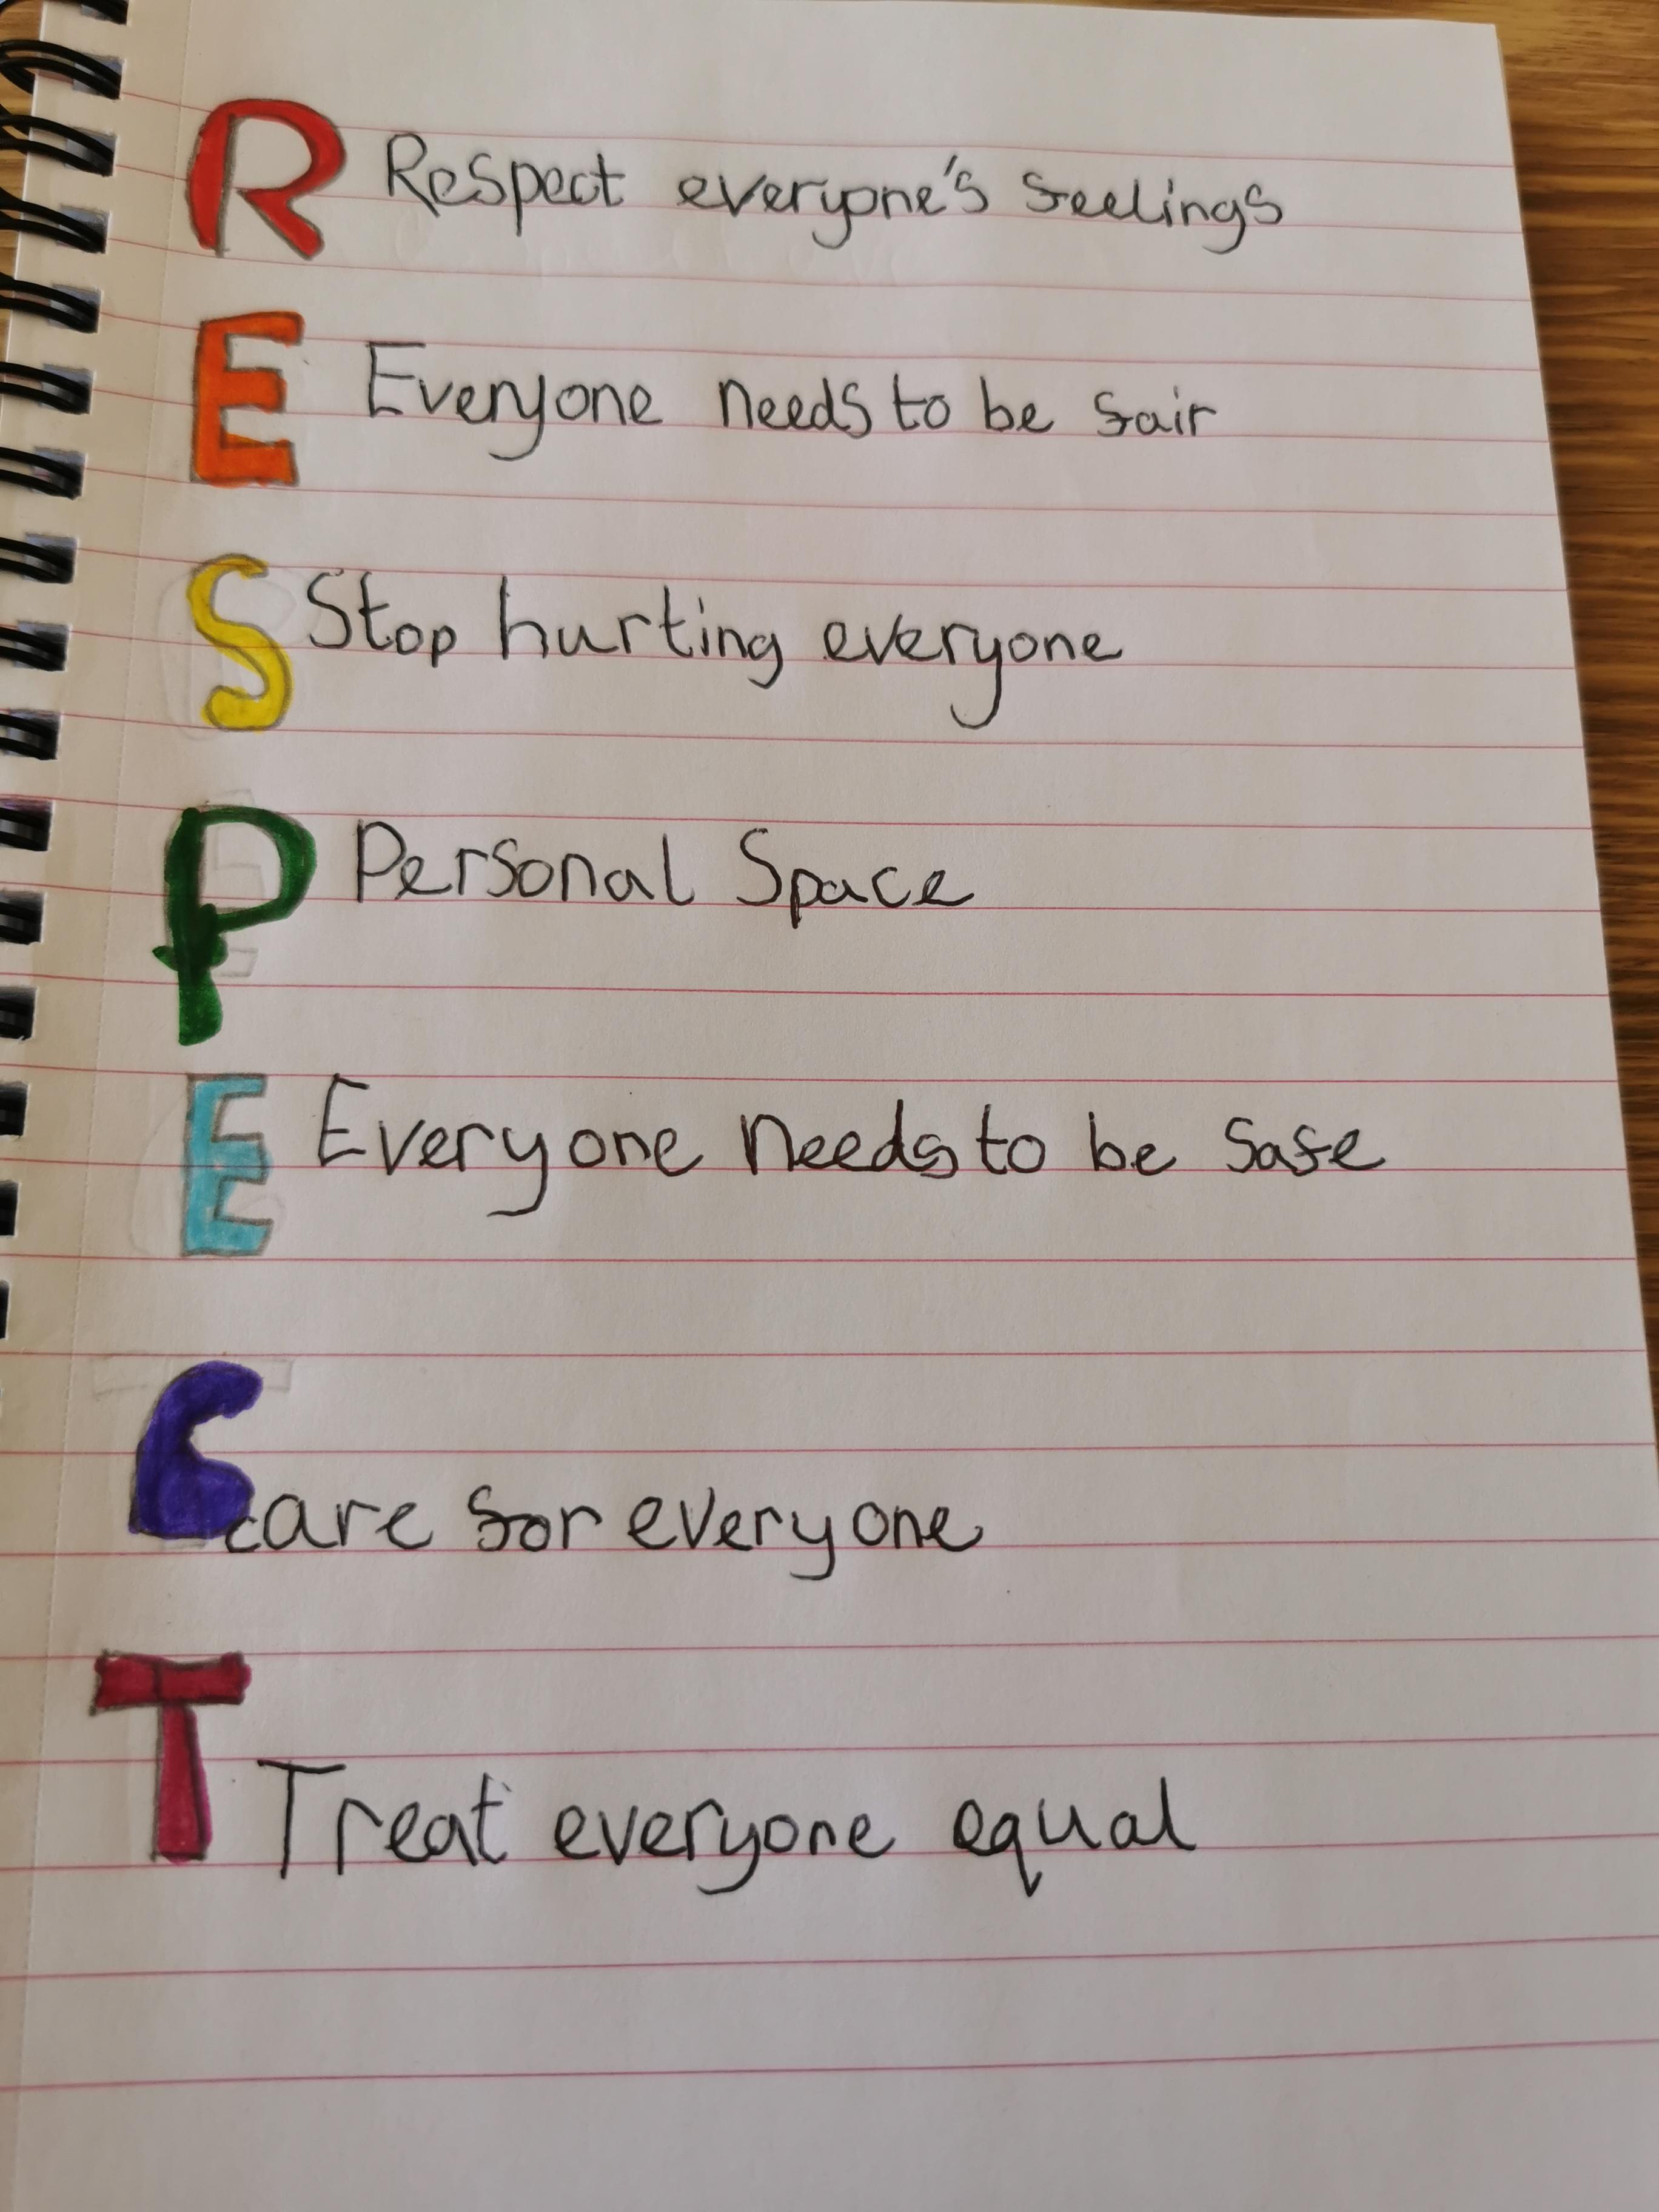 R Respect everyone's feelings
E Everyone needs to be fair
S Stop hurting everyone
P Personal Space
E Everyone needs to be safe
C care for everyone
T Treat everyone equal